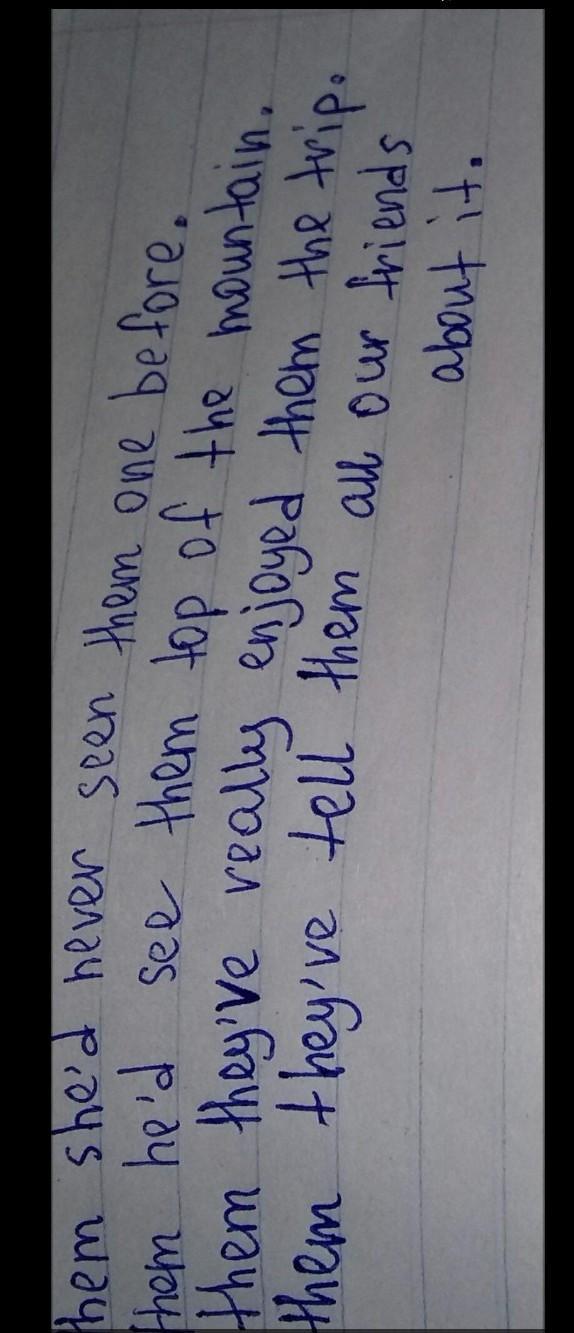 them she'd never seen them one before.
them he'd see them top of the mountain.
them they've really enjoyed them the trip.
them they've tell them all our friends
about it.